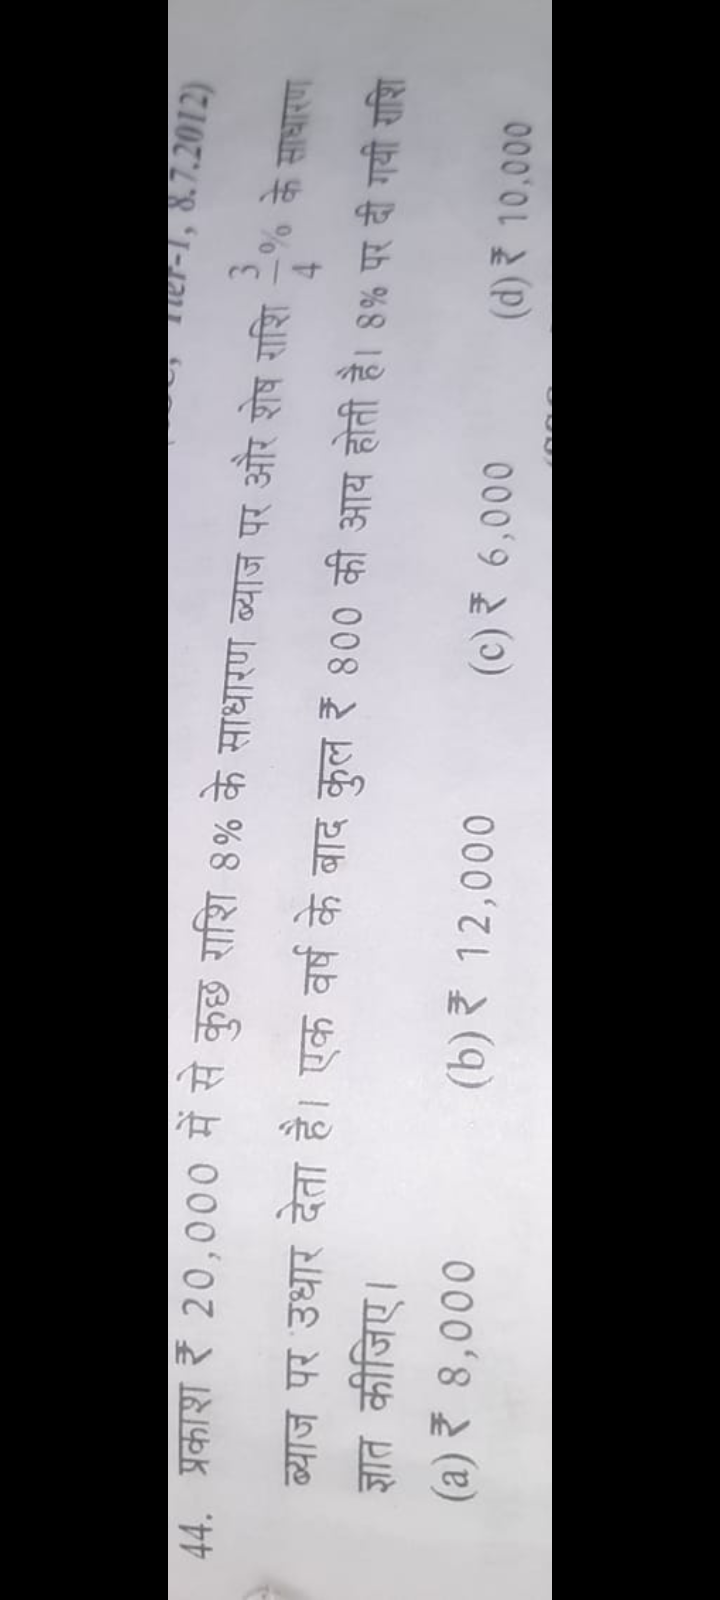 Tier-1, 8.7.2012)
44. प्रकाश ₹ 20,000 में से कुछ राशि 8% के साधारण ब्याज पर और शेष राशि 3/4% के साधारण
ब्याज पर उधार देता है। एक वर्ष के बाद कुल ₹ 800 की आय होती है। 8% पर दी गयी राशि
ज्ञात कीजिए।
(a) ₹ 8,000 (b) ₹ 12,000 (c) ₹ 6,000 (d) ₹ 10,000